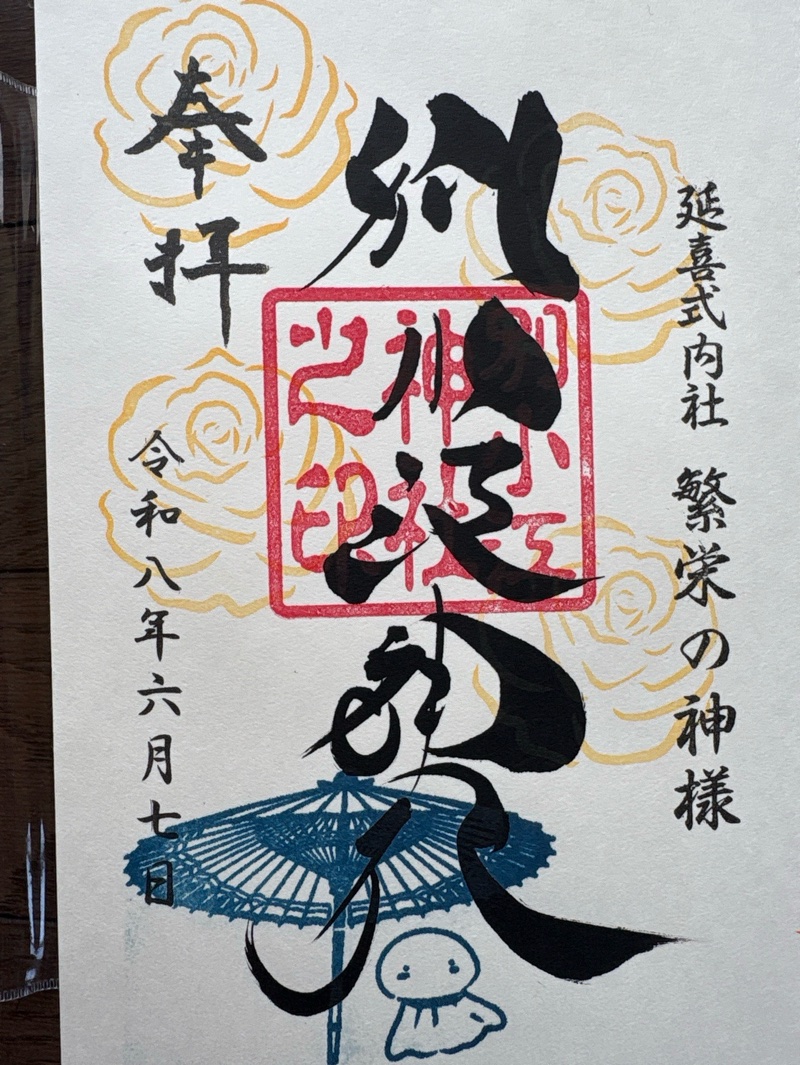 延喜式内社 繁栄の神様
別小江神社
別小江
神社
之印
奉拝
令和八年六月七日